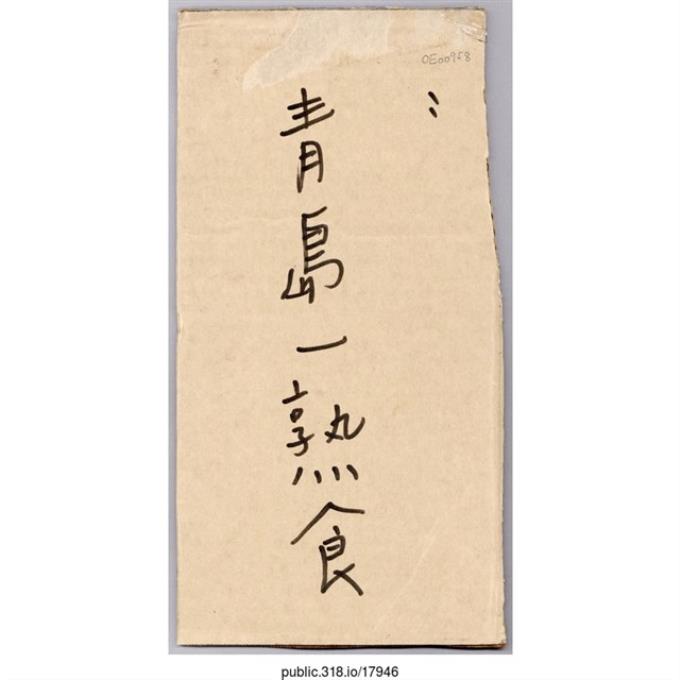 OE00958
青島一熟食
public.318.io/17946